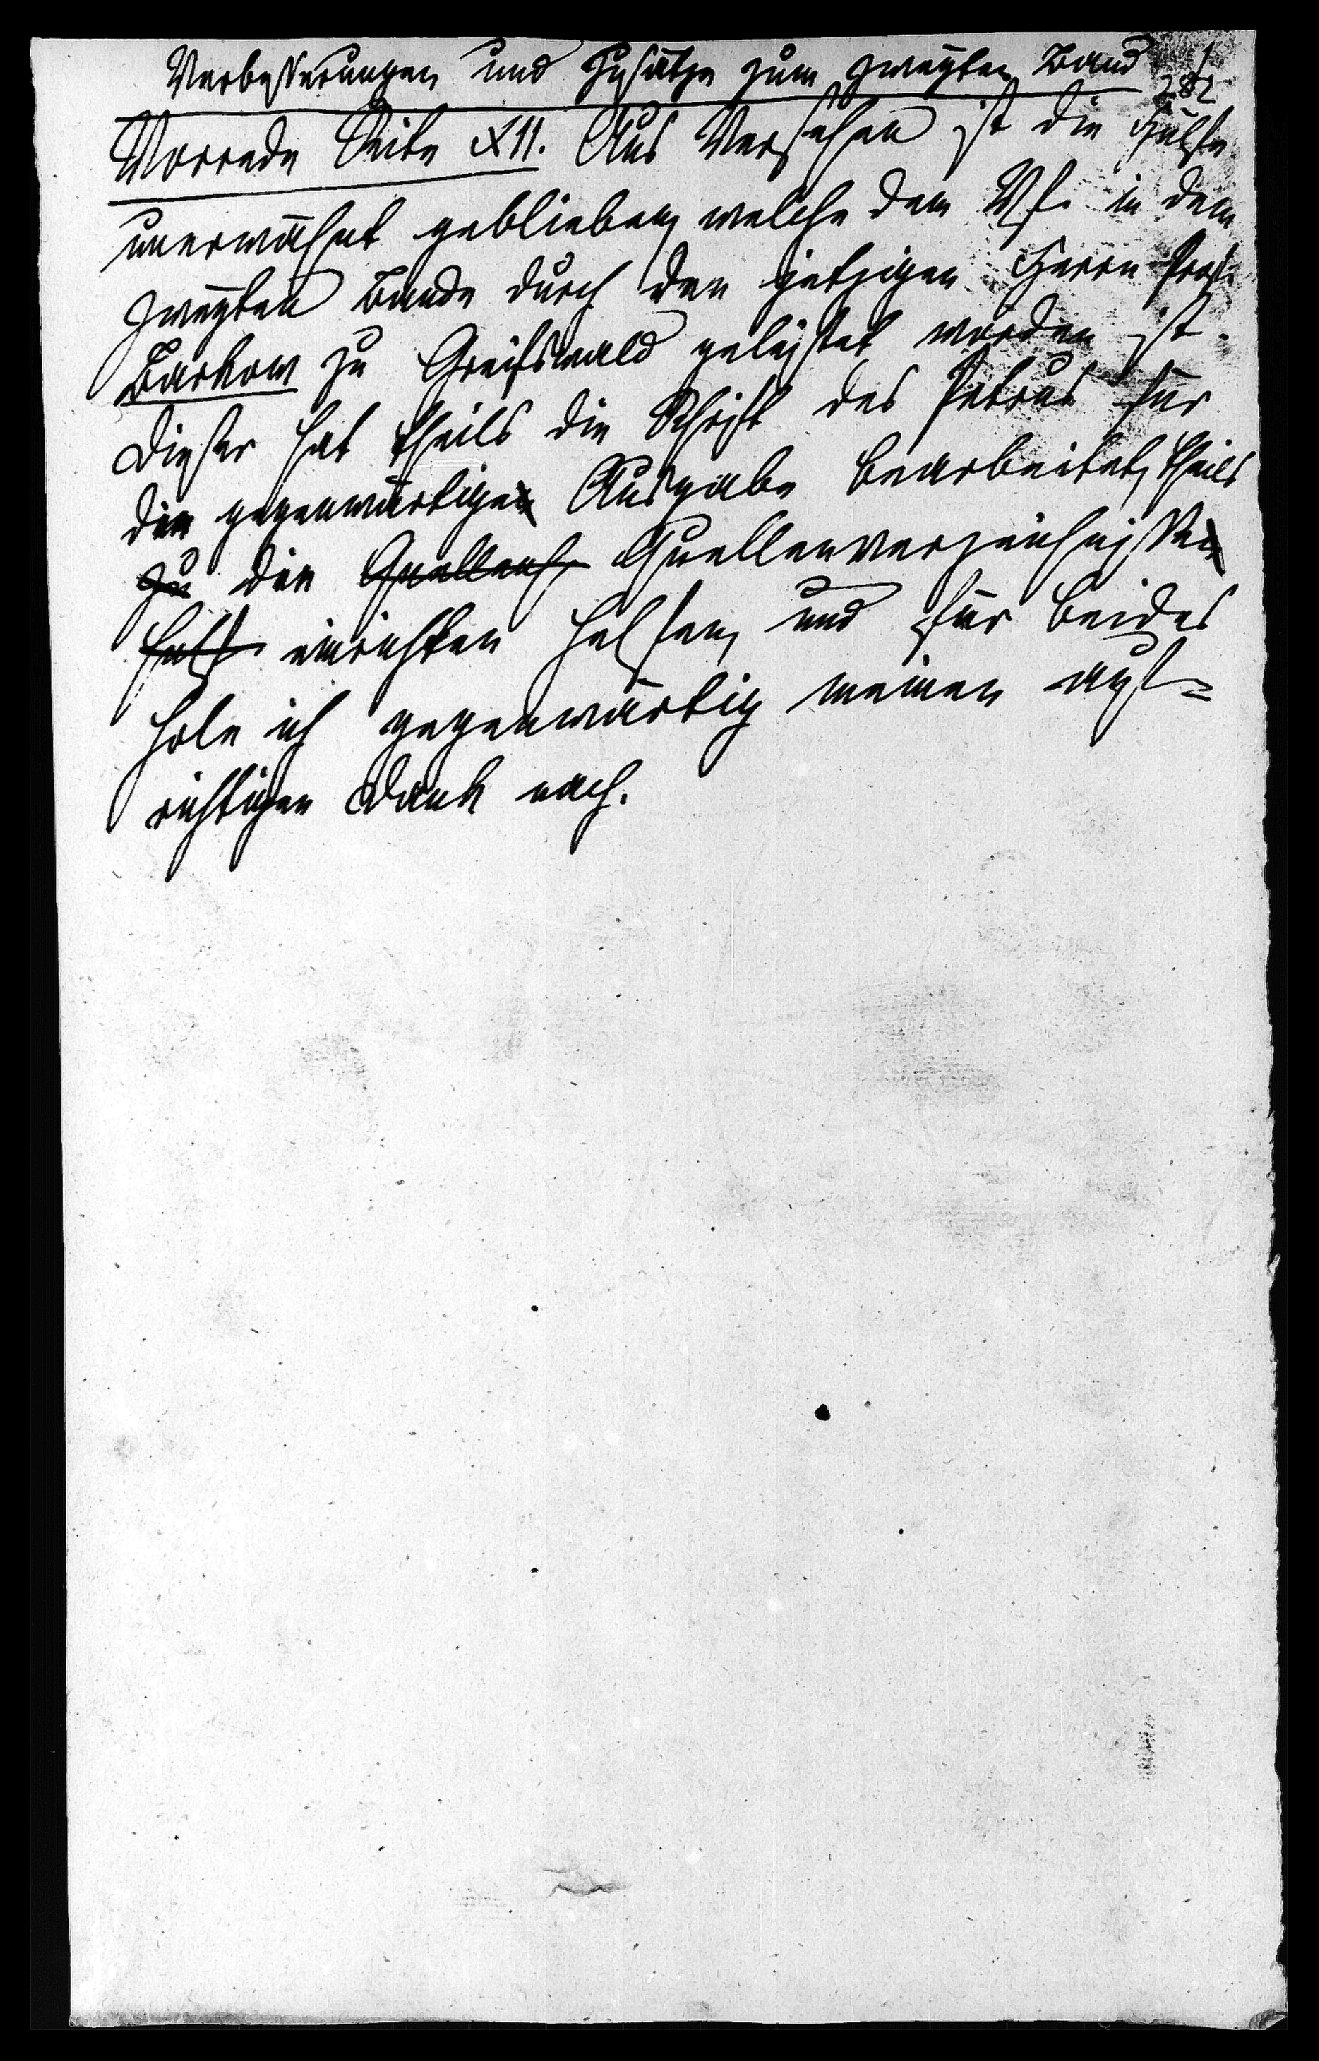 Verbesserungen und Zusätze zum zweyten Band
1
282
Vorrede Seite XII. Aus Versehen ist die Hülfe
unerwähnt geblieben, welche dem Vf. in dem
zweyten Bande durch den jetzigen Herrn Prof.
Barkow zu Greifswald geleistet worden ist.
Dieser hat theils die Schrift des Petrus für
die gegenwärtige Ausgabe bearbeitet, theils
zu die Quellenverzeichnisse
einrichten helfen, und für beides
hole ich gegenwärtig meinen auf-
richtigen Dank nach.